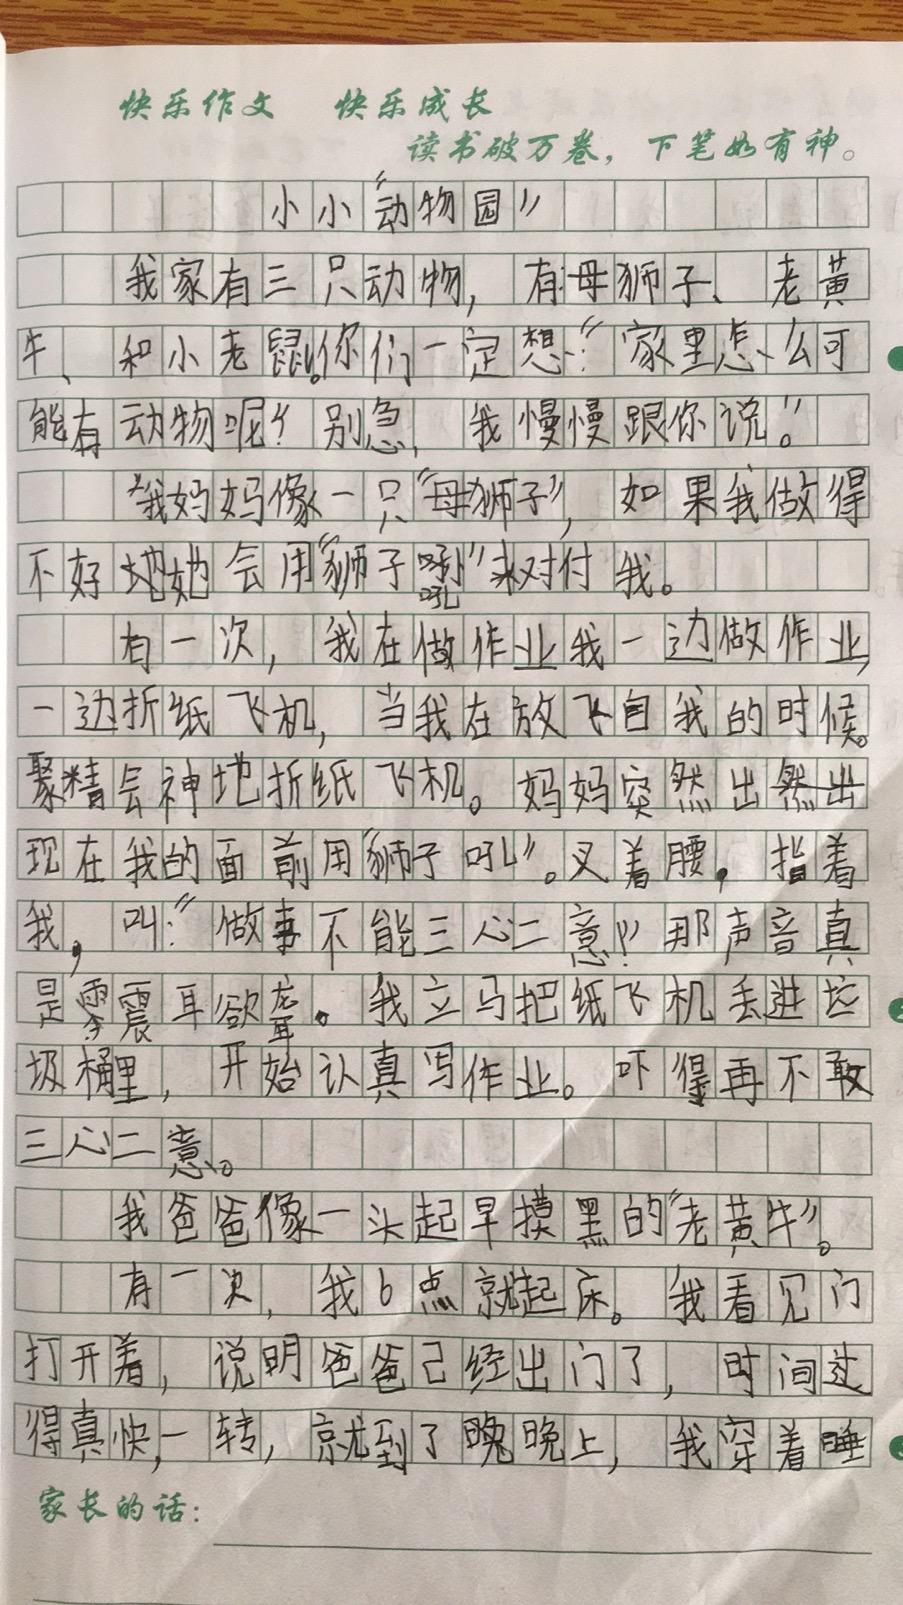 快乐作文 快乐成长
读书破万卷，下笔如有神。
小小“动物园”
我家有三只动物，有母狮子、老黄
牛、和小老鼠。你们一定想：“家里怎么可
能有动物呢？别急，我慢慢跟你说。”
“我妈妈像一只“母狮子”，如果我做得
不好地她会用“狮子吼”来对付我。
有一次，我在做作业我一边做作业，
一边折纸飞机，当我在放飞自我的时候。
聚精会神地折纸飞机。妈妈突然出然出
现在我的面前用“狮子吼”。叉着腰，指着
我，叫：“做事不能三心二意！”那声音真
是震耳欲聋。我立马把纸飞机丢进垃
圾桶里，开始认真写作业。吓得再不敢
三心二意。
我爸爸像一头起早摸黑的“老黄牛”。
有一次，我6点就起床。我看见门
打开着，说明爸爸己经出门了，时间过
得真快，一转，就到了晚晚上，我穿着睡
家长的话：